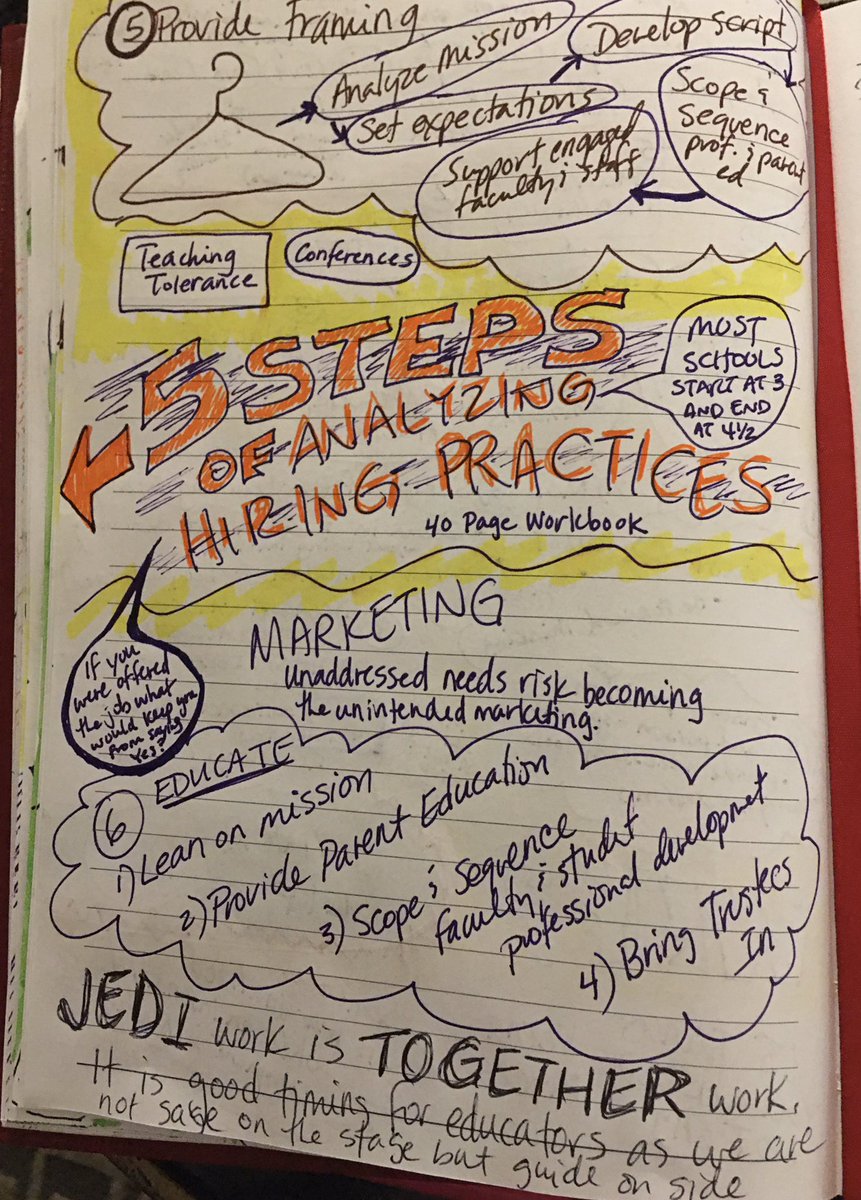 ⑤ Provide Framing
Analyze mission
Set expectations
Develop script
Scope &
Sequence
prof. & parent
ed
Support engaged
faculty & staff
Teaching
Tolerance
Conferences
5 STEPS
OF ANALYZING
HIRING PRACTICES
40 Page Workbook
MOST
SCHOOLS
START AT 3
AND END
AT 4 1/2
If you
were offered
the job what
would keep you
from saying
yes?
MARKETING
Unaddressed needs risk becoming
the unintended marketing.
⑥ EDUCATE
1) Lean on mission
2) Provide Parent Education
3) Scope & Sequence
faculty & student
professional developmet
4) Bring Trustees
In
JEDI work is TOGETHER work.
It is good timing for educators as we are
not sage on the stage but guide on side